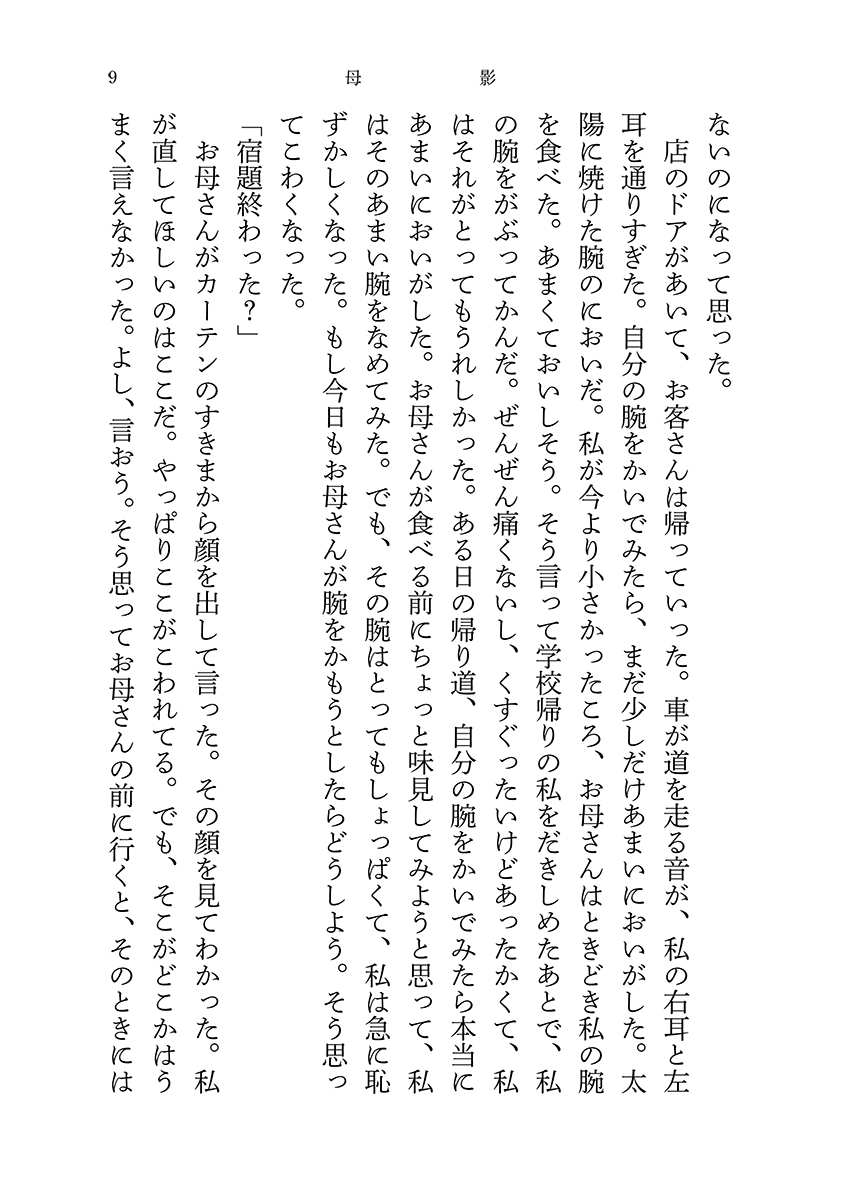 9
母影
ないのになって思った。
　店のドアがあいて、お客さんは帰っていった。車が道を走る音が、私の右耳と左
耳を通りすぎた。自分の腕をかいでみたら、まだ少しだけあまいにおいがした。太
陽に焼けた腕のにおいだ。私が今より小さかったころ、お母さんはときどき私の腕
を食べた。あまくておいしそう。そう言って学校帰りの私をだきしめたあとで、私
の腕をがぶってかんだ。ぜんぜん痛くないし、くすぐったいけどあったかくて、私
はそれがとってもうれしかった。ある日の帰り道、自分の腕をかいでみたら本当に
あまいにおいがした。お母さんが食べる前にちょっと味見してみようと思って、私
はそのあまい腕をなめてみた。でも、その腕はとってもしょっぱくて、私は急に恥
ずかしくなった。もし今日もお母さんが腕をかもうとしたらどうしよう。そう思っ
てこわくなった。
「宿題終わった？」
　お母さんがカーテンのすきまから顔を出して言った。その顔を見てわかった。私
が直してほしいのはここだ。やっぱりここがこわれてる。でも、そこがどこかはう
まく言えなかった。よし、言おう。そう思ってお母さんの前に行くと、そのときには